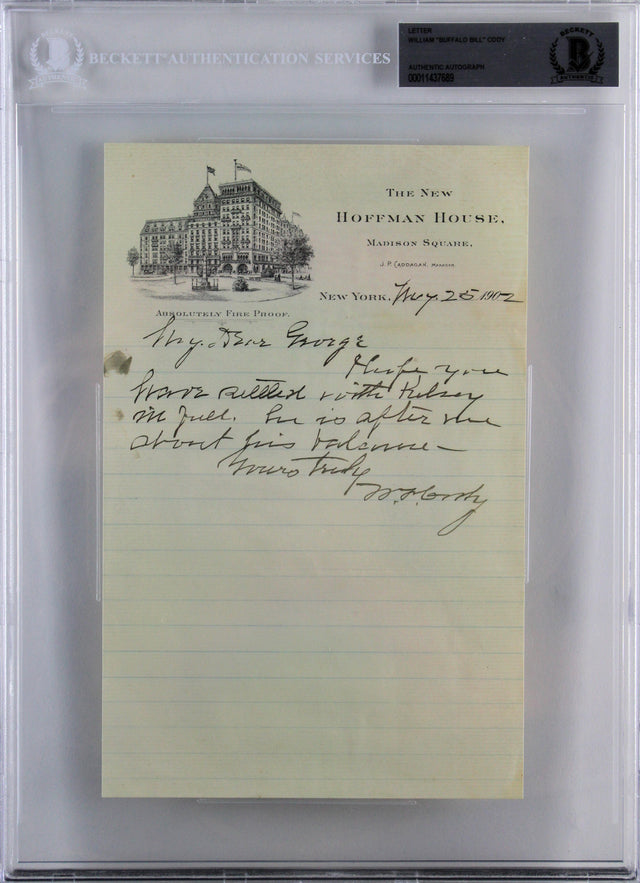 BECKETT AUTHENTICATION SERVICES
LETTER
WILLIAM "BUFFALO BILL" CODY
AUTHENTIC AUTOGRAPH
00011437689
BECKETT
B
AUTHENTIC
THE NEW
HOFFMAN HOUSE,
MADISON SQUARE,
J. P. CADDAGAN, MANAGER
NEW YORK, 25 1902
ABSOLUTELY FIRE PROOF.
My Dear George
I hope you
have settled with Kelsey
in full. he is after me
about his balance—
Yours truly
W. F. Cody